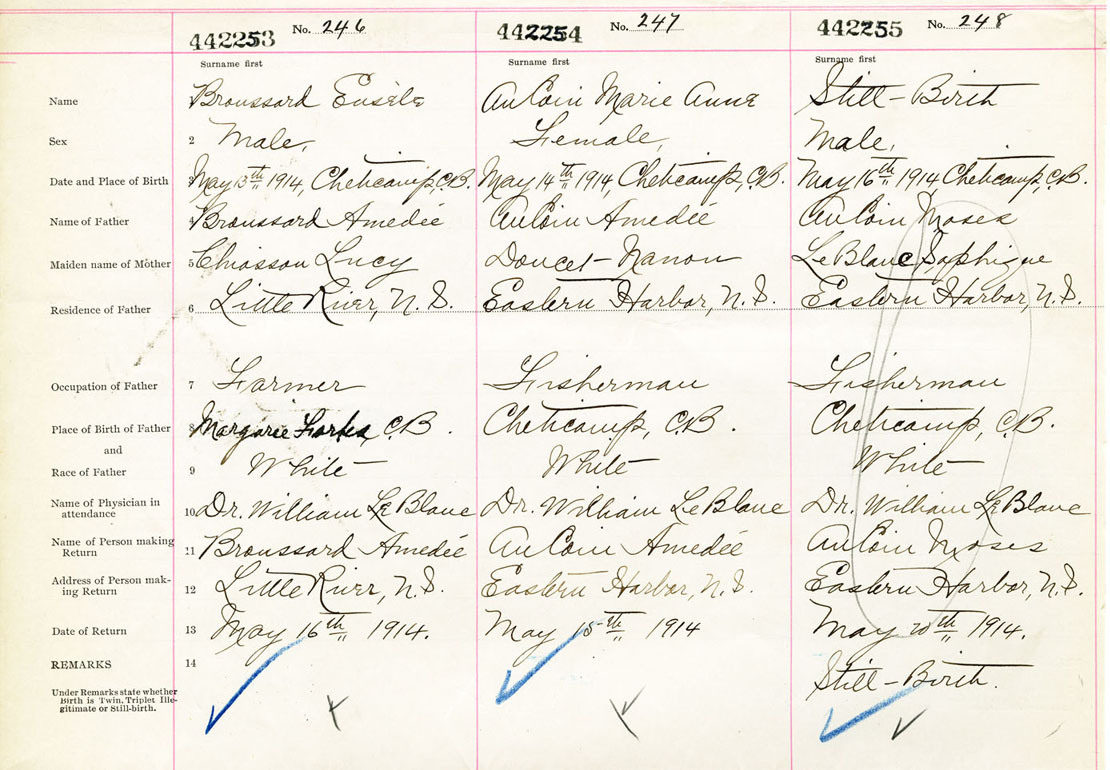 442253 No. 246 442254 No. 247 442255 No. 248
Surname first Surname first Surname first
Name 1 Broussard Eusèbe AuCoin Marie Anne Still-Birth
Sex 2 Male, Female, Male,
Date and Place of Birth May 13th 1914, Cheticamp, C.B. May 14th 1914, Cheticamp, C.B. May 16th 1914, Cheticamp, C.B.
Name of Father 4 Broussard Amedée AuCoin Amedée AuCoin Moses
Maiden name of Mother 5 Chiasson Lucy Doucet Nanon LeBlanc Sophique
Residence of Father 6 Little River, N.S. Eastern Harbor, N.S. Eastern Harbor, N.S.
Occupation of Father 7 Farmer Fisherman Fisherman
Place of Birth of Father 8 Margarie Forks, C.B. Cheticamp, C.B. Cheticamp, C.B.
and
Race of Father 9 White White White
Name of Physician in
attendance 10 Dr. William LeBlanc Dr. William LeBlanc Dr. William LeBlanc
Name of Person making
Return 11 Broussard Amedée AuCoin Amedée AuCoin Moses
Address of Person mak-
ing Return 12 Little River, N.S. Eastern Harbor, N.S. Eastern Harbor, N.S.
Date of Return 13 May 16th 1914. May 15th 1914 May 20th 1914.
REMARKS 14 Still-Birth.
Under Remarks state whether
Birth is Twin, Triplet Ille-
gitimate or Still-birth.